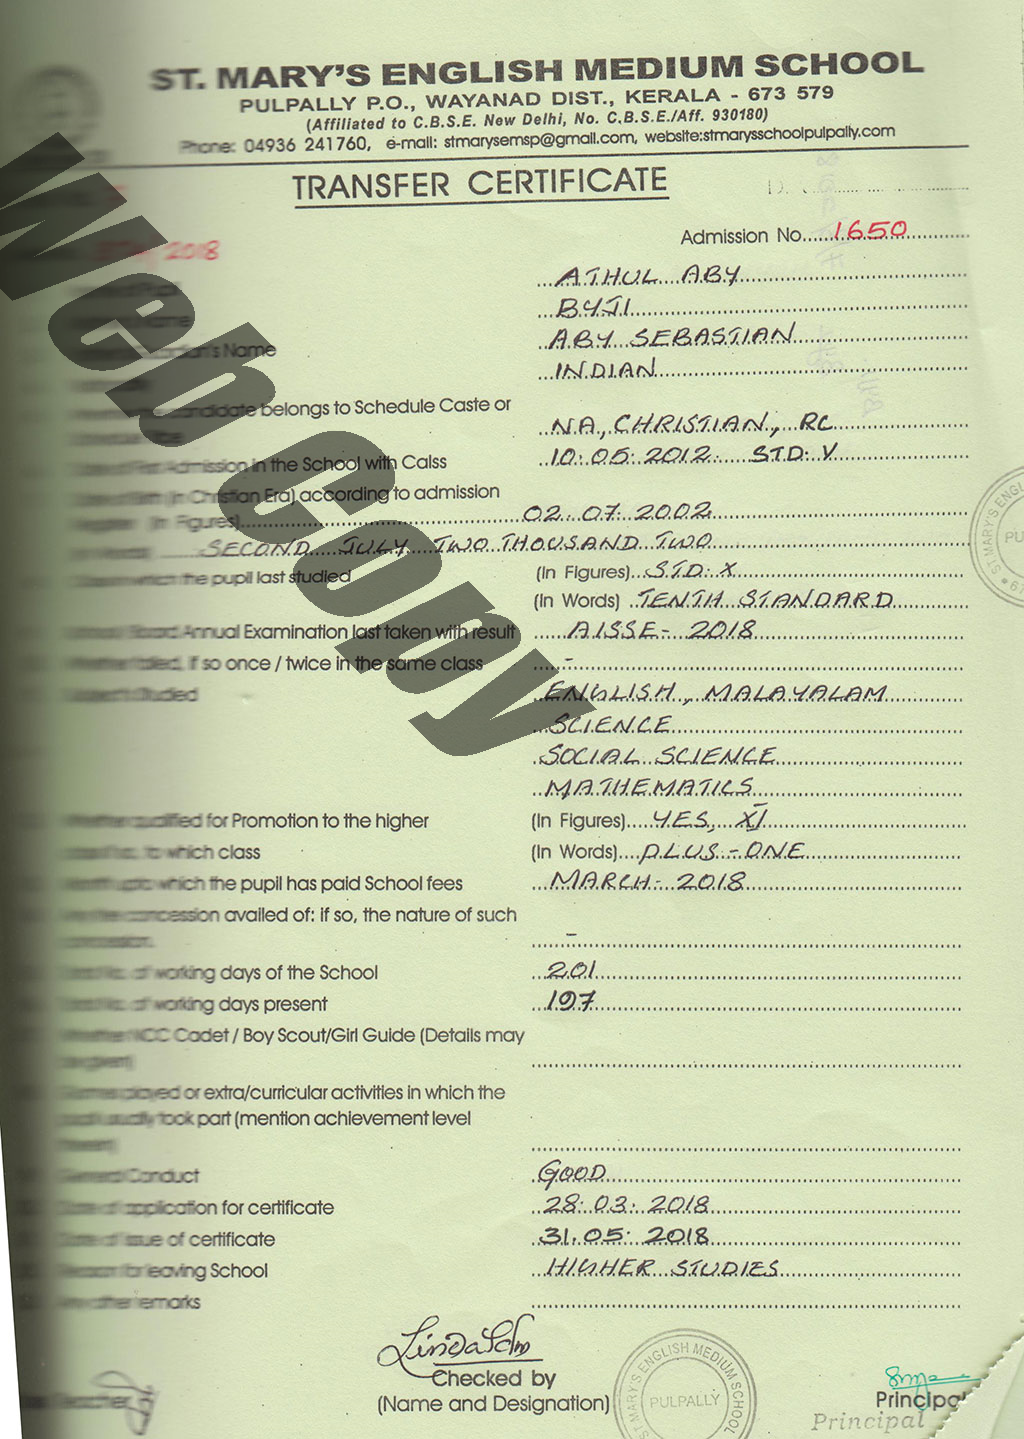 ST. MARY'S ENGLISH MEDIUM SCHOOL
PULPALLY P.O., WAYANAD DIST., KERALA - 673 579
(Affiliated to C.B.S.E. New Delhi, No. C.B.S.E./Aff. 930180)
Phone: 04936 241760, e-mail: stmarysemsp@gmail.com, website:stmarysschoolpulpally.com
TRANSFER CERTIFICATE
Admission No. 1650
2018
ATHUL ABY
BYJI
Name ABY SEBASTIAN
INDIAN
candidate belongs to Schedule Caste or
NA, CHRISTIAN, RC
Admission in the School with Calss 10.05.2012. STD: V
Birth (in Christian Era) according to admission
(In Figures) 02.07.2002
SECOND JULY TWO THOUSAND TWO
which the pupil last studied (In Figures) STD: X
(In Words) TENTH STANDARD
Board Annual Examination last taken with result AISSE - 2018
Whether failed, if so once / twice in the same class -
Studied ENGLISH, MALAYALAM
SCIENCE
SOCIAL SCIENCE
MATHEMATICS
Whether qualified for Promotion to the higher (In Figures) YES, XI
to which class (In Words) PLUS-ONE
which the pupil has paid School fees MARCH - 2018
concession availed of: if so, the nature of such
concession. -
of working days of the School 201
of working days present 197
Whether NCC Cadet / Boy Scout/Girl Guide (Details may
Games played or extra/curricular activities in which the
usually took part (mention achievement level
General Conduct GOOD
Date of application for certificate 28.03.2018
Date of issue of certificate 31.05.2018
Reason for leaving School HIGHER STUDIES
Any other remarks
Checked by
(Name and Designation)
Principal
Principal
ST MARY'S ENGLISH MEDIUM SCHOOL
PULPALLY
ST MARY'S ENG
PU
Web Copy